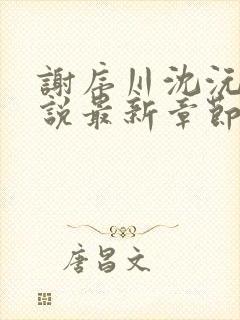 謝辰川沈沅
說最新章節
唐昌文